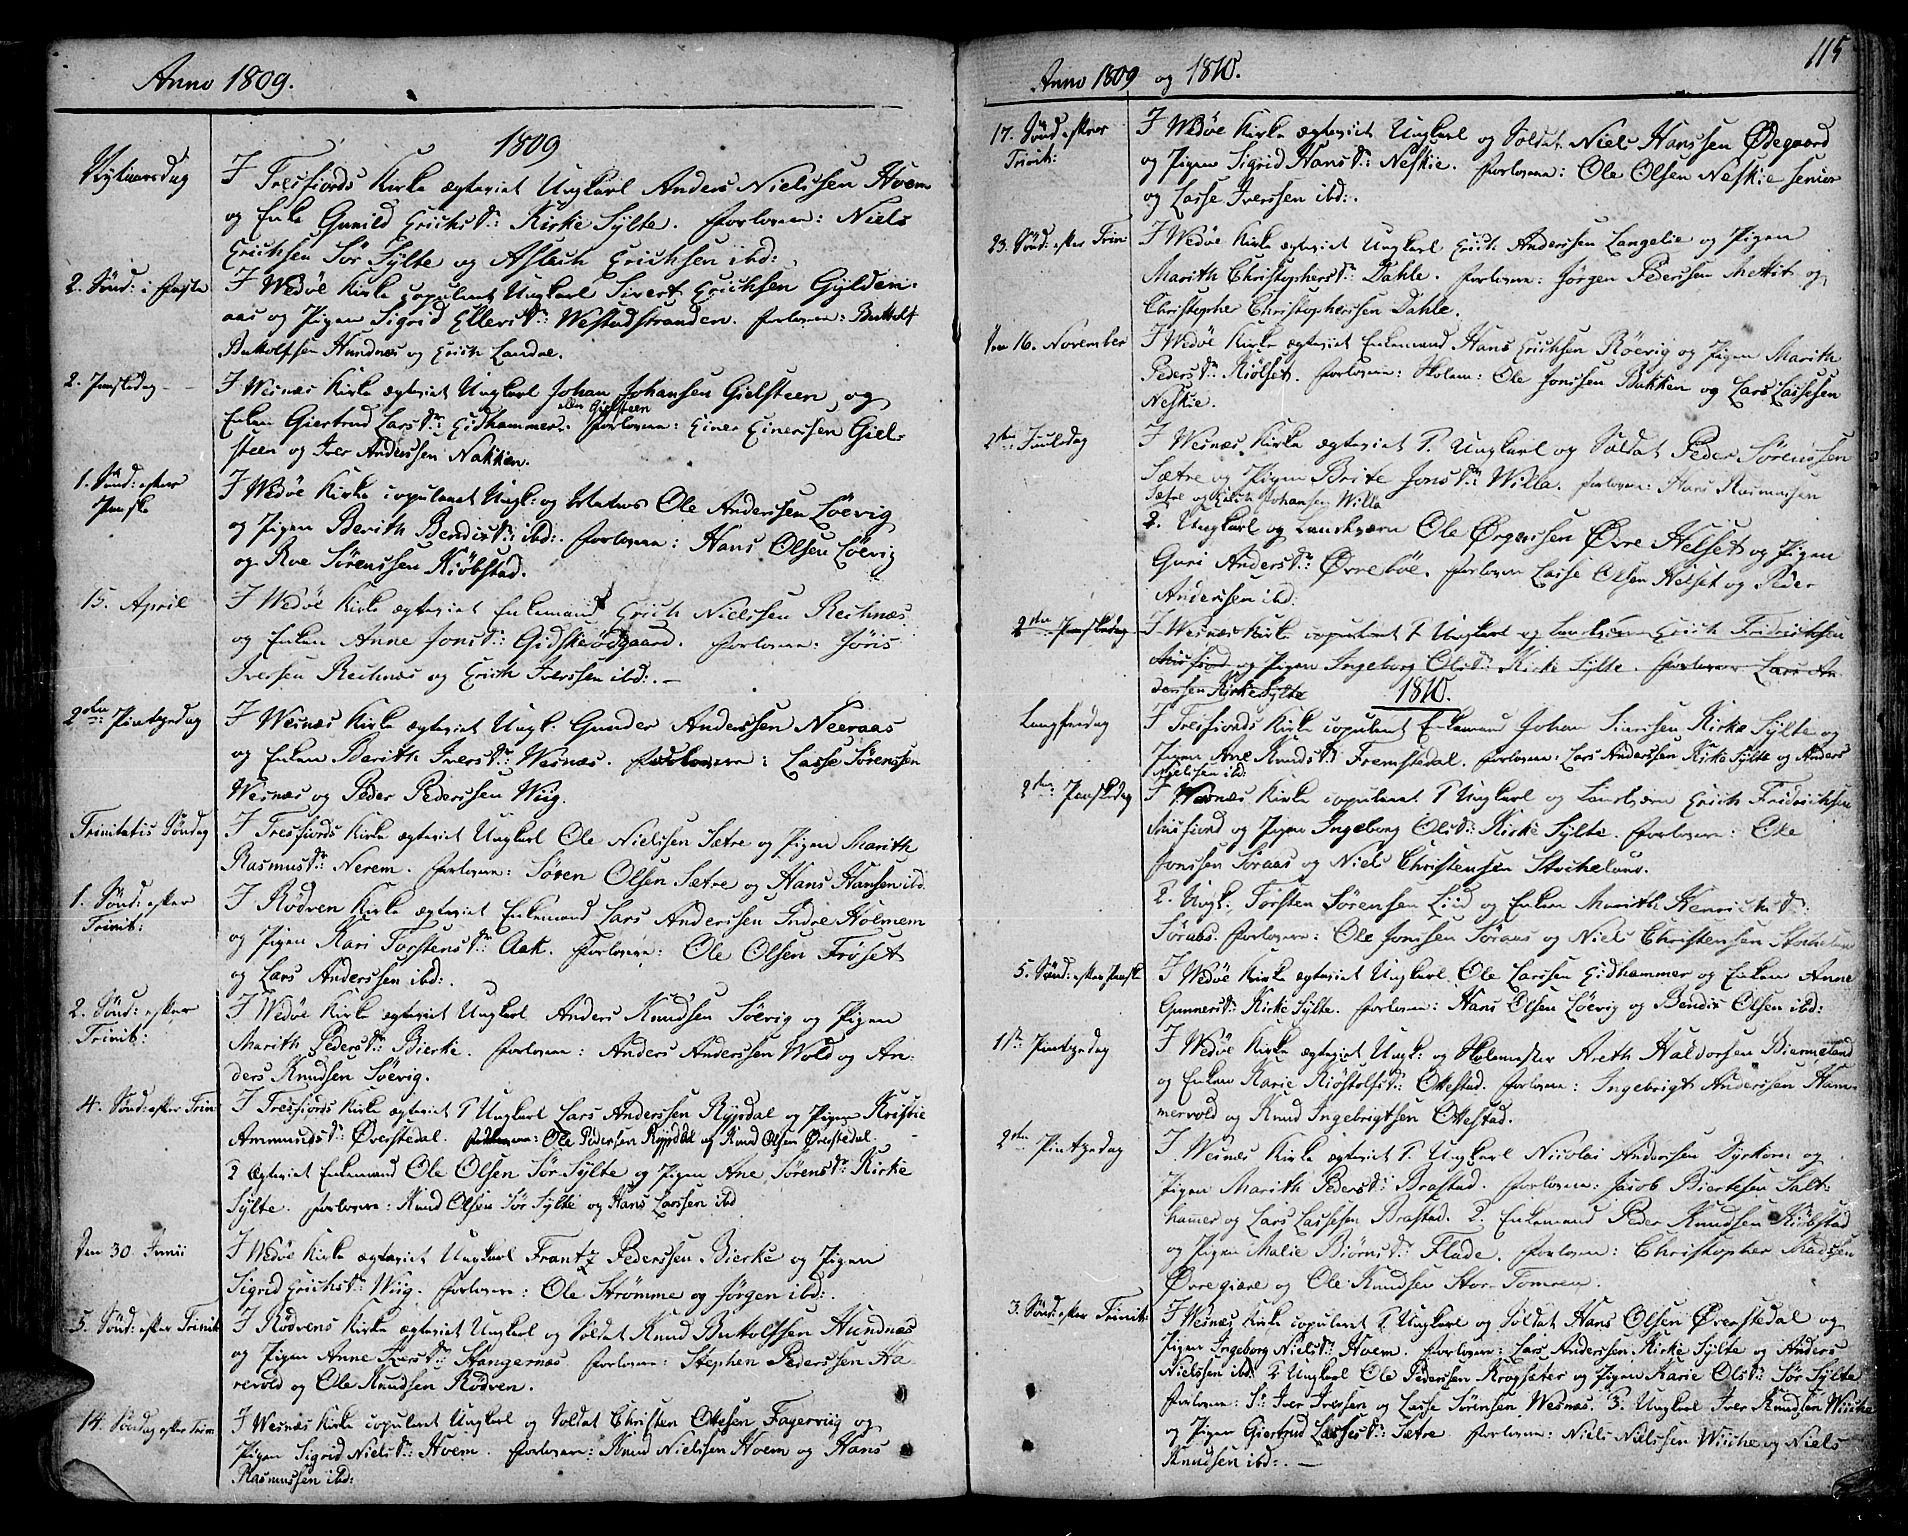 Anno 1809.
1809
Nytaarsdag
I Tresfiords Kirke ægteviet Ungkarl Anders Nielssen Hoem
og Enke Gunild Erichsdr: Kirke Sylte. forlovere: Niels
Erichsen Sør Sylte og Aslach Erichsen ibd:
2. Sønd: i Faste
I Wedøe Kirke copuleret Ungkarl Sivert Erichsen Gylden-
aas og Pigen Sigrid Ellersdr: Westadstranden. forlovere: Buttolf
Buttolfsen Hundnæs og Erich Landae.
2. Paaskedag
I Wesnæs Kirke ægteviet Ungkarl Johan Johansen Gielsteen og
Enken Giertrud Larsdr: Gidhammer. forlovere: Einer Einersen Giel-
eller Gielsteen
steen og Iver Anderssen Nakken.
1. Sønd: efter
Paaske
I Wedøe Kirke copuleret Ungk: og Matros Ole Anderssen Løevig
og Pigen Berith Bendixdr: ibd:. forlovere: Hans Olsen Løevig
og Roe Sørenssen Kiøbstad.
15. April
I Wedøe Kirke ægteviet Enkemand Erich Nielssen Rechnæs
og Enken Anne Jonsdr: Gidskeødgaard. forlovere: Jøris
Iversen Rechnæs og Erich Iverssen ibd:. —
2den Pintzedag
I Wesnæs Kirke ægteviet Ungk: Gunder Anderssen Neeraas
og Enken Berith Iversdr: Wesnæs. forlovere: Lasse Sørenssen
Wesnæs og Peder Pederssen Wiig.
Trinitatis Søndag
I Tresfiords Kirke ægteviet Ungkarl Ole Nielssen Sætre og Pigen Marith
Rasmusdr: Nerem. forlovere: Søren Olsen Sætre og Hans Hansen ibd.
1. Sønd: efter
Trinit:
I Rødven Kirke ægteviet Enkemand Lars Anderssen Indre Holmem
og Pigen Kari Torstensdr: Aak. forlovere: Ole Olsen Frøset
og Lars Anderssen ibd:.
2. Sønd: efter
Trinit:
I Wedøe Kirke ægteviet Ungkarl Anders Knudsen Søevig og Pigen
Marith Pedersdr: Bierke. forlovere: Anders Anderssen Wold og An-
ders Knudsen Søevig.
4. Sønd: efter Trin
I Tresfiords Kirke ægteviet 1 Ungkarl Lars Anderssen Rypdal og Pigen Kristie
Ammundsdr: Øverstedal. forlovere: Ole Pedersen Rypdal og Knud Olsen Øverstedal. —
2 Ægteviet Enkemand Ole Olsen Sør Sylte og Pigen Ane Sørensdr: Kirke
Sylte. forlovere: Knud Olsen Sør Sylte og Hans Larssen ibd
Den 30 Junii
I Wedøe Kirke ægteviet Ungkarl Frantz Pederssen Bierke og Pigen
Sigrid Erichsdr: Wiig. forlovere: Ole Strømme og Jørgen ibd:.
5. Sønd: efter Trinit
I Rødvens Kirke ægteviet Ungkarl og Soldat Knud Buttolfssen Hundnæs
og Pigen Anne Iversdr: Stangernæs. forlovere: Stephen Pederssen Ha-
revold og Ole Knudsen Rødven.
14. Søndag efter Trin
I Wesnæs Kirke copuleret Ungkarl og Soldat Christen Ottesen Fagerviig og
Pigen Sigrid Nielsdr: Hoem. forlovere: Knud Nielssen Hoem og Hans
Rasmussen ibd:
Anno 1809 og 1810.
115
17. Sønd: efter
Trinit:
I Wedøe Kirke ægteviet Ungkarl og Soldat Niels Hanssen Ødegaard
og Pigen Sigrid Hansdr: Neskie. forlovere: Ole Olsen Neskie senior
og Lasse Iverssen ibd:.
23. Sønd: efter Trin
I Wedøe Kirke ægteviet Ungkarl Erich Anderssen Langelie og Pigen
Marith Christophersdr: Dahle. forlovere: Jørgen Pederssen Mettit og
Christopher Christopherssen Dahle.
Den 16. November
I Wedøe Kirke ægteviet Enkemand Hans Erichsen Røevig og Pigen Marith
Pedersdr: Kiølset. forlovere: Holem: Ole Jonssen Bakken og Lars Lassesen
Neskie.
2den Juuldag
I Wesnæs Kirke ægteviet 1. Ungkarl og Soldat Peder Sørenssen
Sætre og Pigen Brite Jonsdr: Willa. forlovere: Hans Rasmussen
Sætre og Erich Johansen Willa
2. Ungkarl og Landværn Ole Ørgerssen Øvre Helset og Pigen
Guri Andersdr: Øvrebøe. forlovere Lasse Olsen Helset og Peder
Anderssen ibd:
2den Paaskedag
I Wesnæs Kirke copuleret 1 Ungkarl og Landværn Erich Fridrichsen
Aarsfiord og Pigen Ingeborg Olsdr: Kirke Sylte. forlovere Lars An-
derssen Kirke Sylte
1810.
Langfredag
I Tresfiords Kirke copuleret Enkemand Johan Siversen Kirke Sylte og
Pigen Ane Knudsdr: Fremstedal. forlovere: Lars Anderssen Kirke Sylte og Anders
Nielssen ibd:
2den Paaskedag
I Wesnæs Kirke copuleret 1 Ungkarl og Landværn Erich Fridrichsen
Aarsfiord og Pigen Ingeborg Olsdr: Kirke Sylte. forlovere: Ole
Jonssen Søraas og Niels Christensen Stocheland.
2. Ungk: Torsten Sørensen Liid og Enken Marith Henrichsdr:
Søraas. forlovere: Ole Jonssen Søraas og Niels Christensen Stochelan
5. Sønd: efter Paask
I Wedøe Kirke ægteviet Ungkarl Ole Larssen Gidhammer og Enken Anne
Gunnersdr: Kirke Sylte. forlovere: Hans Olsen Løevig og Bendix Olsen ibd:
1ste Pintzedag
I Wedøe Kirke ægteviet Ungk: og Skolemester Areth Haldorsen Biermeland
og Enken Marie Kiøstolfsdr: Ottestad. forlovere: Ingebrigt Anderssen Ham-
mervold og Knud Ingebrigtsen Ottestad.
2den Pintzedag
I Wesnæs Kirke ægteviet 1 Ungkarl Nicolai Anderssen Dyrkorn og
Pigen Marith Pedersdr: Brastad. forlovere: Jacob Biertesen Salt-
hammer og Lars Lassesen Brastad. 2. Enkemand Peder Knudsen Kiøbstad
og Pigen Malie Biørnsdr: Flade. forlovere: Christopher Madssen
Øvregiære og Ole Knudsen Stor Tomren.
3. Sønd: efter Trinit:
I Wesnæs Kirke copuleret 1 Ungkarl og Soldat Hans Olsen Øverstedal og
Pigen Ingeborg Nielsdr: Hoem. forlovere: Lars Anderssen Kirke Sylte og Anders
Nielssen ibd: 2 Ungkarl Ole Pederssen Krogsæter og Pigen Karie Olsdr: Sør Sylte
forlovere: Sr: Iver Iverssen og Lasse Sørensen Wesnæs. 3. Ungkarl Iver Knudsen Wiiche
og Pigen Giertrud Lassesdr: Sætre forlovere: Niels Nielssen Wiiche og Niels
Knudsen ibd:. —